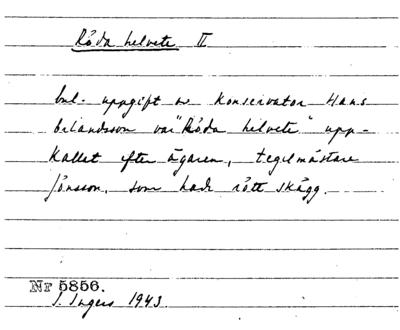 Röda helvete II
Enl. uppgift av Konservator Hans
Erlandsson var "Röda helvete" upp-
kallat efter ägaren, tegelmästare
Jönsson, som hade rött skägg.
Nr 5856.
I. Ingers 1943.